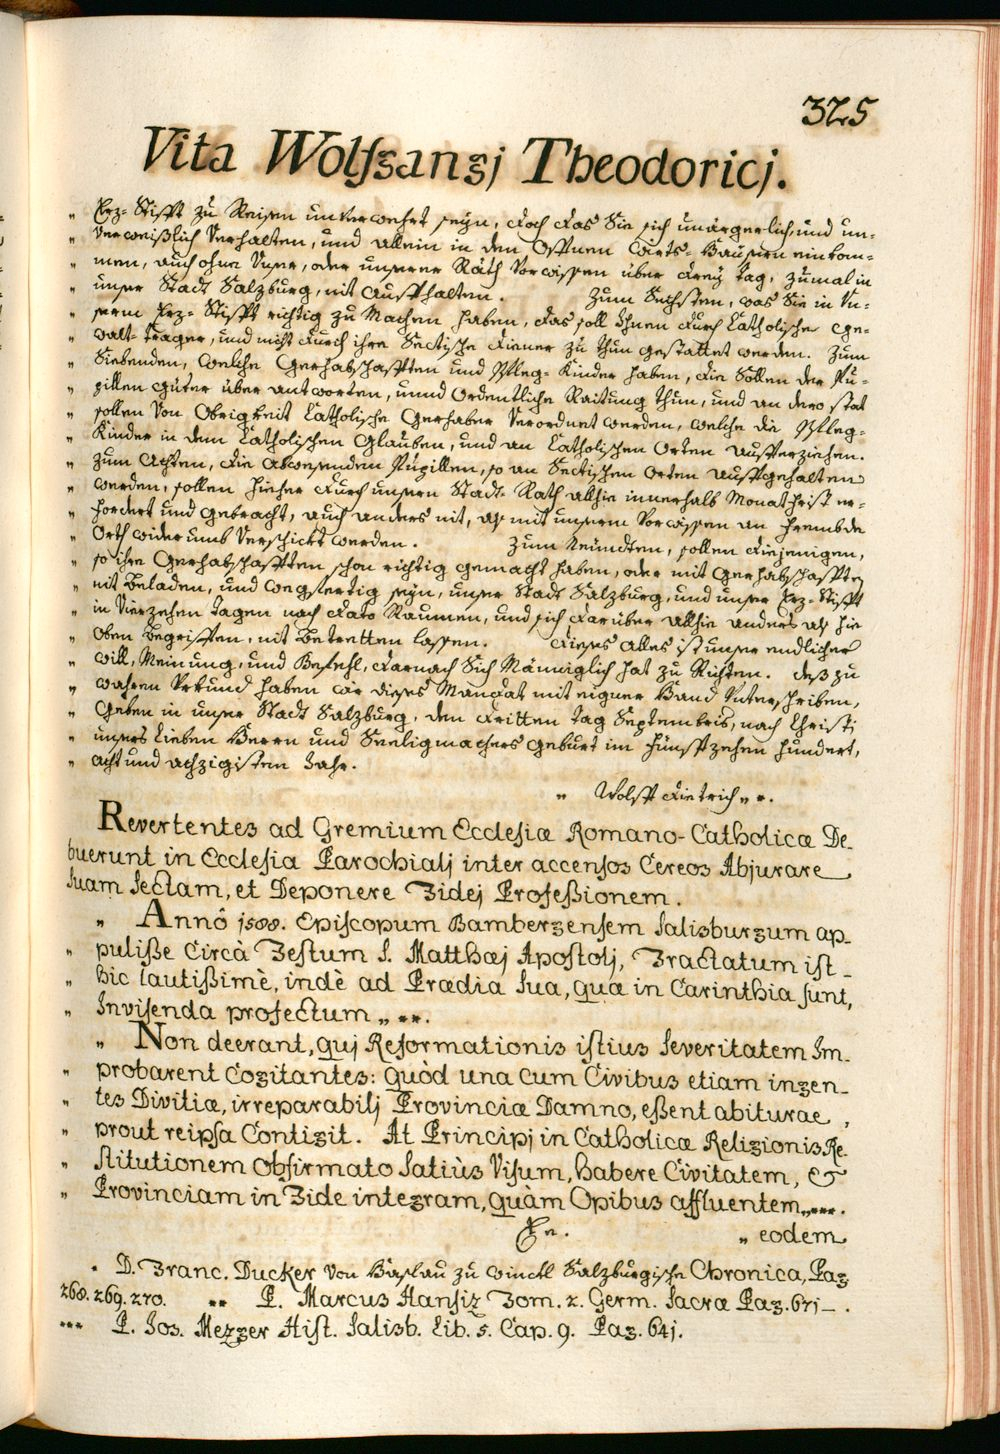 325
Vita Wolfgangj Theodoricj.
„ Erz-Stifft zu Reisen unverwehrt seyn, doch das Sie sich unärgerlich, und un-
„ verweißlich verhalten, und allein in den Offnen Wirts-Häusern einkom-
„ men, auch ohne Unser, oder unserer Räth Vorwissen über drey Tag, zumal in
„ unser Stadt Salzburg, nit aufhalten. Zum Sechsten, was Sie in Un-
„ serm Erz-Stifft richtig zu Machen haben, das soll Ihnen durch Catholische Ge-
„ walt-Trager, und nicht durch ihre Sectische Diener zu thun gestattet werden. Zum
„ Siebenden, Welche Gerhabschafften und Pfleg-Kinder haben, die Sollen der Pu-
„ pillen Güter über antworten, unnd Ordentliche Raitung thun, und an dero stat
„ sollen Von Obrigkeit Catholische Gerhaber Verordnet werden, welche die Pfleg-
„ Kinder in dem Catholischen Glauben, und an Catholischen Orten aufferziehen.
„ Zum Achten, die abwesenden Pupillen, so an Sectischen Orten auffgehalten
„ werden, sollen hieher durch unsern Stadt-Rath allhie innerhalb Monat Frist er-
„ fordert und gebracht, auch anders nit, als mit unserm Vorwissen an frembde
„ Orth widerumb Verschickt werden. Zum Neündten, sollen diejenigen,
„ so ihre Gerhabschafften schon richtig gemacht haben, oder mit Gerhabschafften
„ nit Beladen, und wegfertig seyn, unser Stadt Salzburg, und unser Erz-Stifft
„ in Vierzehen Tagen nach dato Raumen, und sich darüber allhie anders als hie
„ Oben Begriffen, nit Betretten lassen. Dieses Alles ist unser endlicher
„ Will, Meinung, und Befehl, darnach Sich Männiglich hat zu Richten. Deß zu
„ wahren Urkund haben wir dieses Mandat mit eigner Hand Unterschriben,
„ Geben in unser Stadt Salzburg, den dritten Tag Septembris, nach Christi
„ unsers Lieben Herrn und Seeligmachers Geburt im Fünffzehen hundert,
„ acht und achzigistem Jahr.
„ Wolff Dietrich „ *.
Revertentes ad Gremium Ecclesiæ Romano-Catholicæ De-
buerunt in Ecclesia Parochialj inter accensos Cereos Abjurare
suam sectam, et Deponere Fidej Professionem.
„ Annô 1588. Episcopum Bambergensem Salisburgum ap-
„ pulisse Circà Festum S. Matthæj Apostolj, Tractatum ist-
„ hic lautissimè, indè ad Prædia sua, quæ in Carinthia sunt,
„ Invisenda profectum „ **.
„ Non deerant, quj Reformationis istius severitatem Im-
„ probarent Cogitantes: quòd una cum Civibus etiam ingen-
„ tes Divitiæ, irreparabilj Provinciæ Damno, essent abiturae,
„ prout reipsa Contigit. At Principj in Catholicæ Religionis Re-
„ stitutionem obfirmato Satiùs Visum, habere Civitatem, &
„ Provinciam in Fide integram, quàm Opibus affluentem „ ***.
„ eodem
* D. Franc. Ducker Von Haslau zu Winckl Salzburgische Chronica, Pag
268. 269. 270. ** P. Marcus Hansiz Tom. 2. Germ. Sacræ Pag. 671-.
*** P. Jos. Mezger Hist. Salisb. Lib. 5. Cap. 9. Pag. 641.